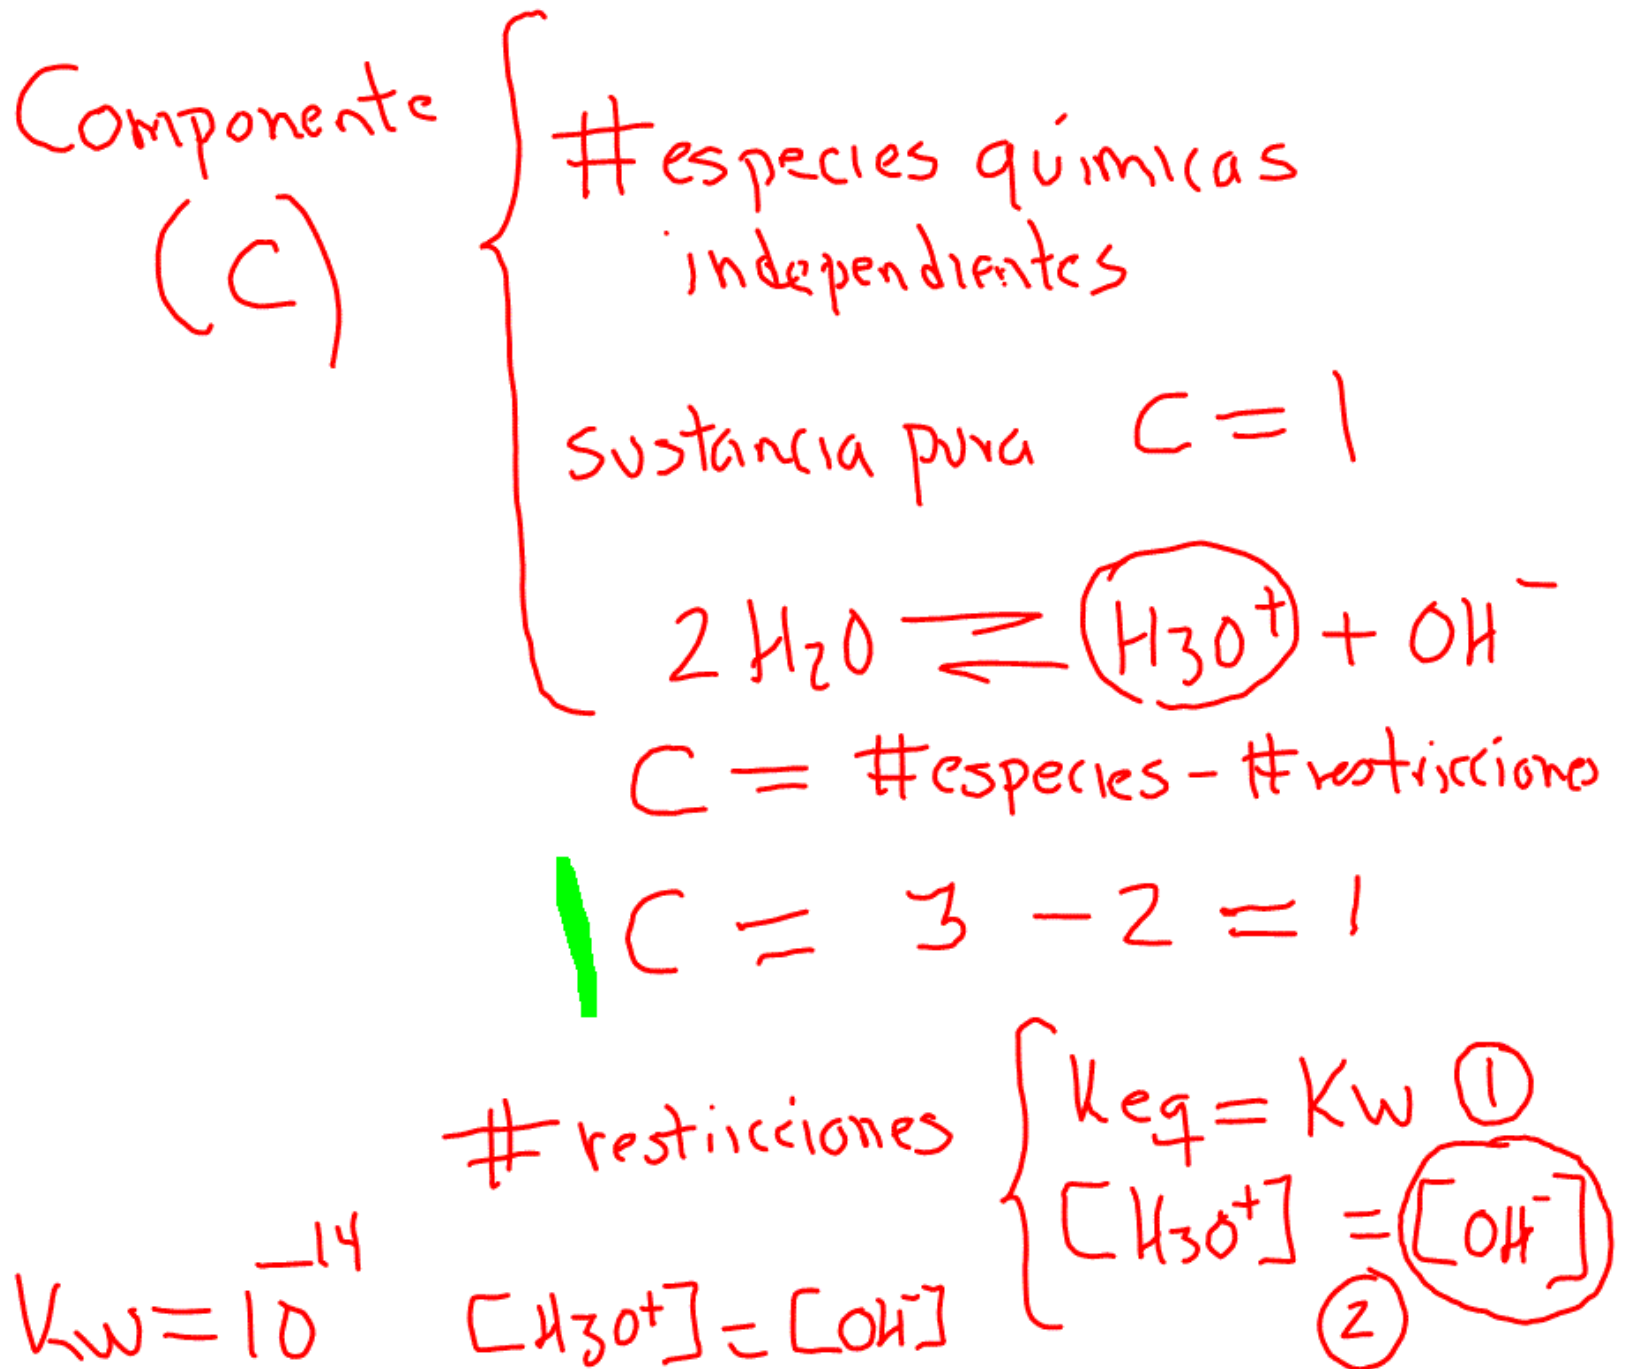 Componente
(C)
#especies químicas
independientes
sustancia pura C = 1
2 H₂O ⇌ H3O⁺ + OH⁻
C = #especies - #restricciones
C = 3 - 2 = 1
#restricciones
Keq = Kw ①
[H3O⁺] = [OH⁻]
②
Kw = 10⁻¹⁴ [H3O⁺] = [OH⁻]